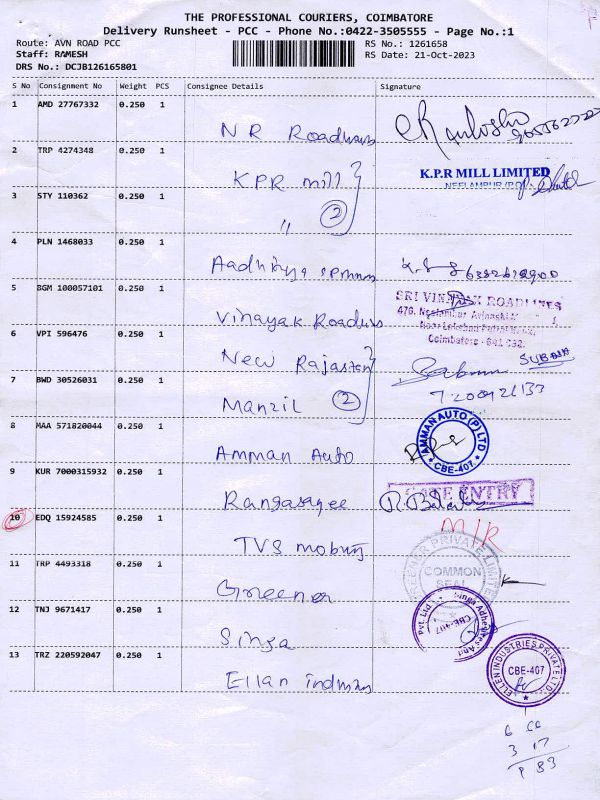 THE PROFESSIONAL COURIERS, COIMBATORE
Delivery Runsheet - PCC - Phone No.:0422-3505555 - Page No.:1
Route: AVN ROAD PCC
RS No.: 1261658
Staff: RAMESH
RS Date: 21-Oct-2023
DRS No.: DCJB126165801
S No Consignment No Weight PCS Consignee Details Signature
1 AMD 27767332 0.250 1
NR Roadways
2 TRP 4274348 0.250 1
K.P.R MILL LIMITED
NEELAMPUR (PO)
K.P.R mill
3 STY 110362 0.250 1
" 2
4 PLN 1468033 0.250 1
Aadhitya
5 BGM 100057101 0.250 1
SRI VINAYAK ROADLINES
Coimbatore - 641
Vinayak Roadways
6 VPI 596476 0.250 1
New Rajastan
7 BWD 30526031 0.250 1
Manzil 2
8 MAA 571820044 0.250 1
AMMAN AUTO (P) LTD
CBE-407
Amman Auto
9 KUR 7000315932 0.250 1
GATE ENTRY
Rangasayee
10 EDQ 15924585 0.250 1
M/R
TVS
11 TRP 4493318 0.250 1
PRIVATE LIMITED
COMMON
SEAL
Greener
12 TNJ 9671417 0.250 1
Pvt. Ltd
CBE-407
Singa
13 TRZ 220592047 0.250 1
ELLEN INDUSTRIES PRIVATE LTD
CBE-407
Ellan